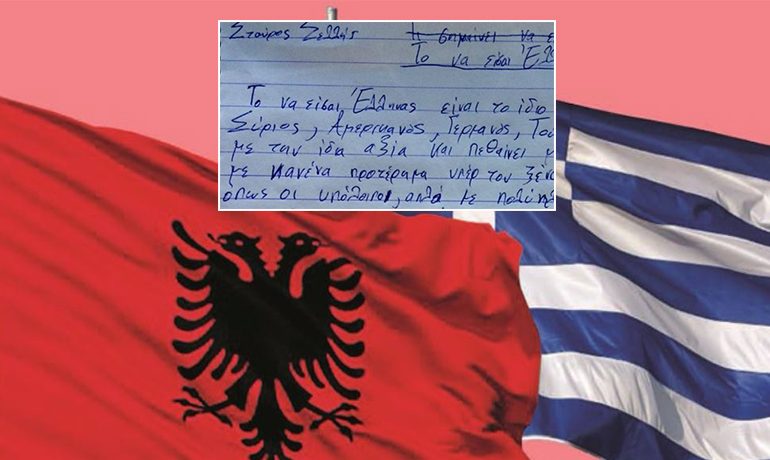 Σταύρος Τι σημαίνει να
Το να είσαι Έλλ
Το να είσαι Έλληνας είναι το ίδιο
Σύριος, Αμερικανός, Γερμανός, Του
με την ίδια αξία και πεθαίνει
με κανένα προτέραμα υπέρ του ξέν
όπως οι υπόλοιποι, απλά με πολύ